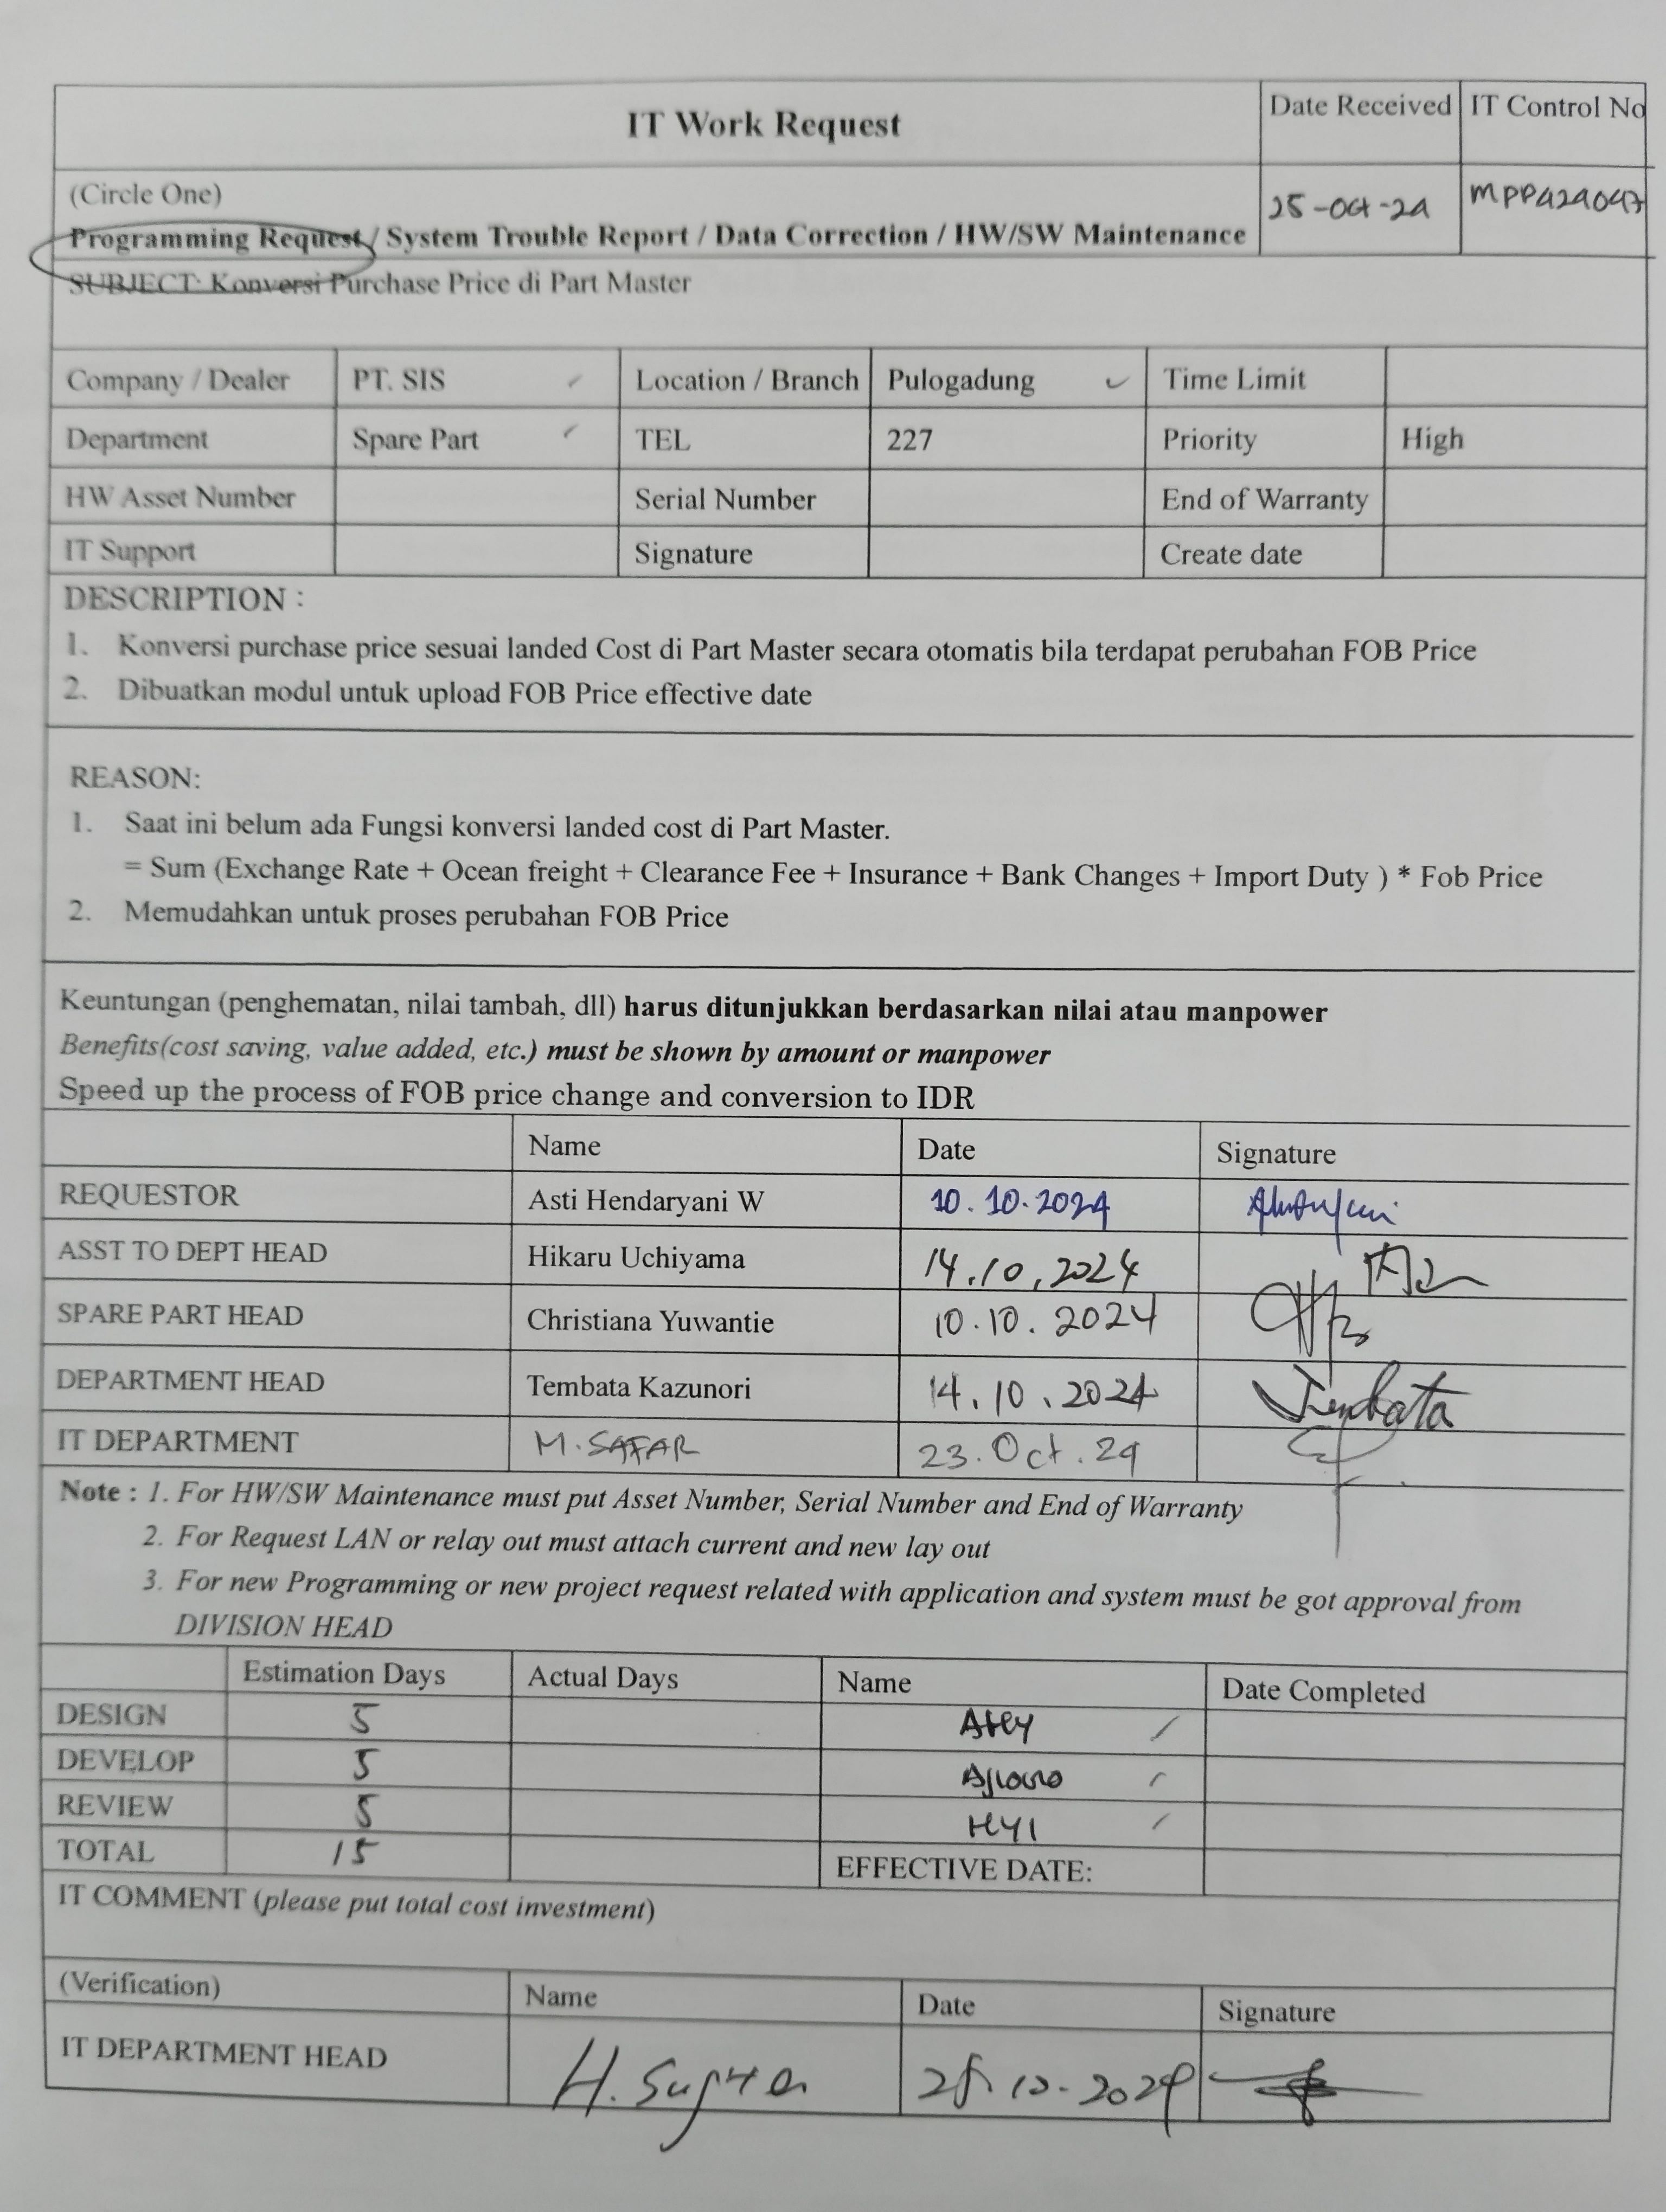 IT Work Request
Date Received
IT Control No
(Circle One)
Programming Request / System Trouble Report / Data Correction / HW/SW Maintenance
25-Oct-24
SUBJECT: Konversi Purchase Price di Part Master
Company / Dealer PT. SIS Location / Branch Pulogadung Time Limit
Department Spare Part TEL 227 Priority High
HW Asset Number Serial Number End of Warranty
IT Support Signature Create date
DESCRIPTION :
1. Konversi purchase price sesuai landed Cost di Part Master secara otomatis bila terdapat perubahan FOB Price
2. Dibuatkan modul untuk upload FOB Price effective date
REASON:
1. Saat ini belum ada Fungsi konversi landed cost di Part Master.
= Sum (Exchange Rate + Ocean freight + Clearance Fee + Insurance + Bank Changes + Import Duty ) * Fob Price
2. Memudahkan untuk proses perubahan FOB Price
Keuntungan (penghematan, nilai tambah, dll) harus ditunjukkan berdasarkan nilai atau manpower
Benefits(cost saving, value added, etc.) must be shown by amount or manpower
Speed up the process of FOB price change and conversion to IDR
Name Date Signature
REQUESTOR Asti Hendaryani W 10.10.2024
ASST TO DEPT HEAD Hikaru Uchiyama 14.10.2024
SPARE PART HEAD Christiana Yuwantie 10.10.2024
DEPARTMENT HEAD Tembata Kazunori 14.10.2024 Tembata
IT DEPARTMENT M. SAFAR 23.Oct.24
Note : 1. For HW/SW Maintenance must put Asset Number, Serial Number and End of Warranty
2. For Request LAN or relay out must attach current and new lay out
3. For new Programming or new project request related with application and system must be got approval from
DIVISION HEAD
Estimation Days Actual Days Name Date Completed
DESIGN 5
DEVELOP 5
REVIEW 5 HYI
TOTAL 15 EFFECTIVE DATE:
IT COMMENT (please put total cost investment)
(Verification) Name Date Signature
IT DEPARTMENT HEAD